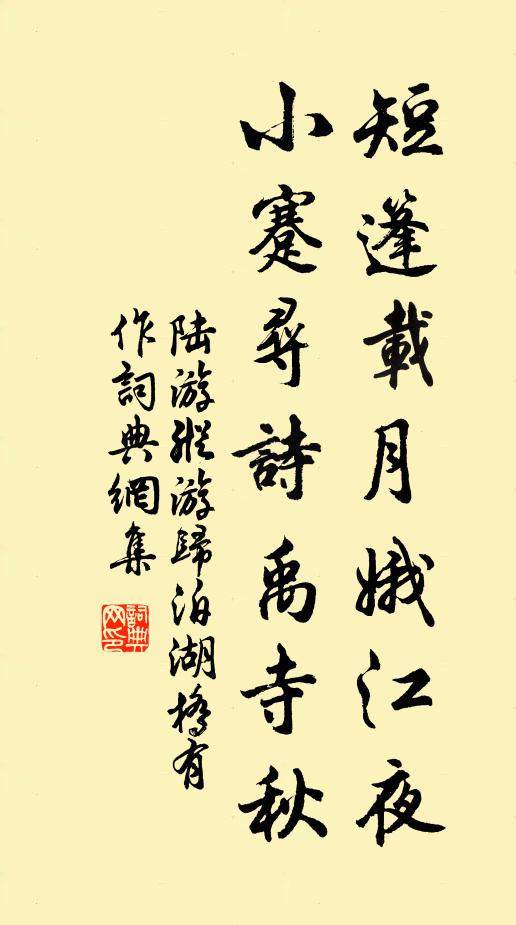 短蓬載月娥江夜
小蹇尋詩禹寺秋
陆游縱游歸泊湖橋有
作詞典網集
詞典
网印